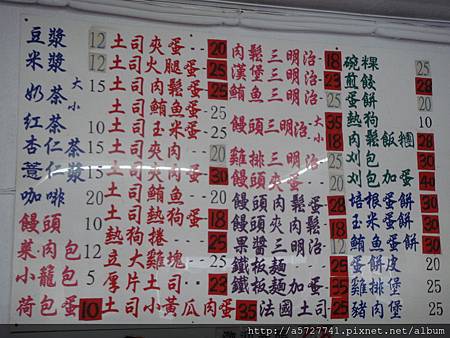 豆漿 12
米漿 12
奶茶 大 小 15
紅茶 10
杏仁茶 15
薏仁漿 15
咖啡 20
饅頭 10
菜.肉包 12
小龍包 5
荷包蛋 10
土司夾蛋 20
土司火腿蛋
土司肉鬆蛋
土司鮪魚蛋 25
土司玉米蛋
土司夾肉
土司夾肉蛋
土司鮪魚
土司熱狗蛋
熱狗捲
雞塊
厚片土司
土司小黃瓜肉蛋 35
肉鬆三明治 18
漢堡三明治
鮪魚三明治
饅頭三明治 大 小
雞排三明治
饅頭夾蛋 20
饅頭肉鬆蛋
饅頭夾肉蛋
果醬三明治
鐵板麵 25
鐵板麵加蛋 35
法國土司 25
碗粿 25
煎餃 28
蛋餅
熱狗 10
肉鬆飯糰 28
刈包 30
刈包加蛋 40
培根蛋餅 30
玉米蛋餅 30
鮪魚蛋餅 30
蛋餅皮 20
豬肉堡 25
http://a5727741.pixnet.net/album